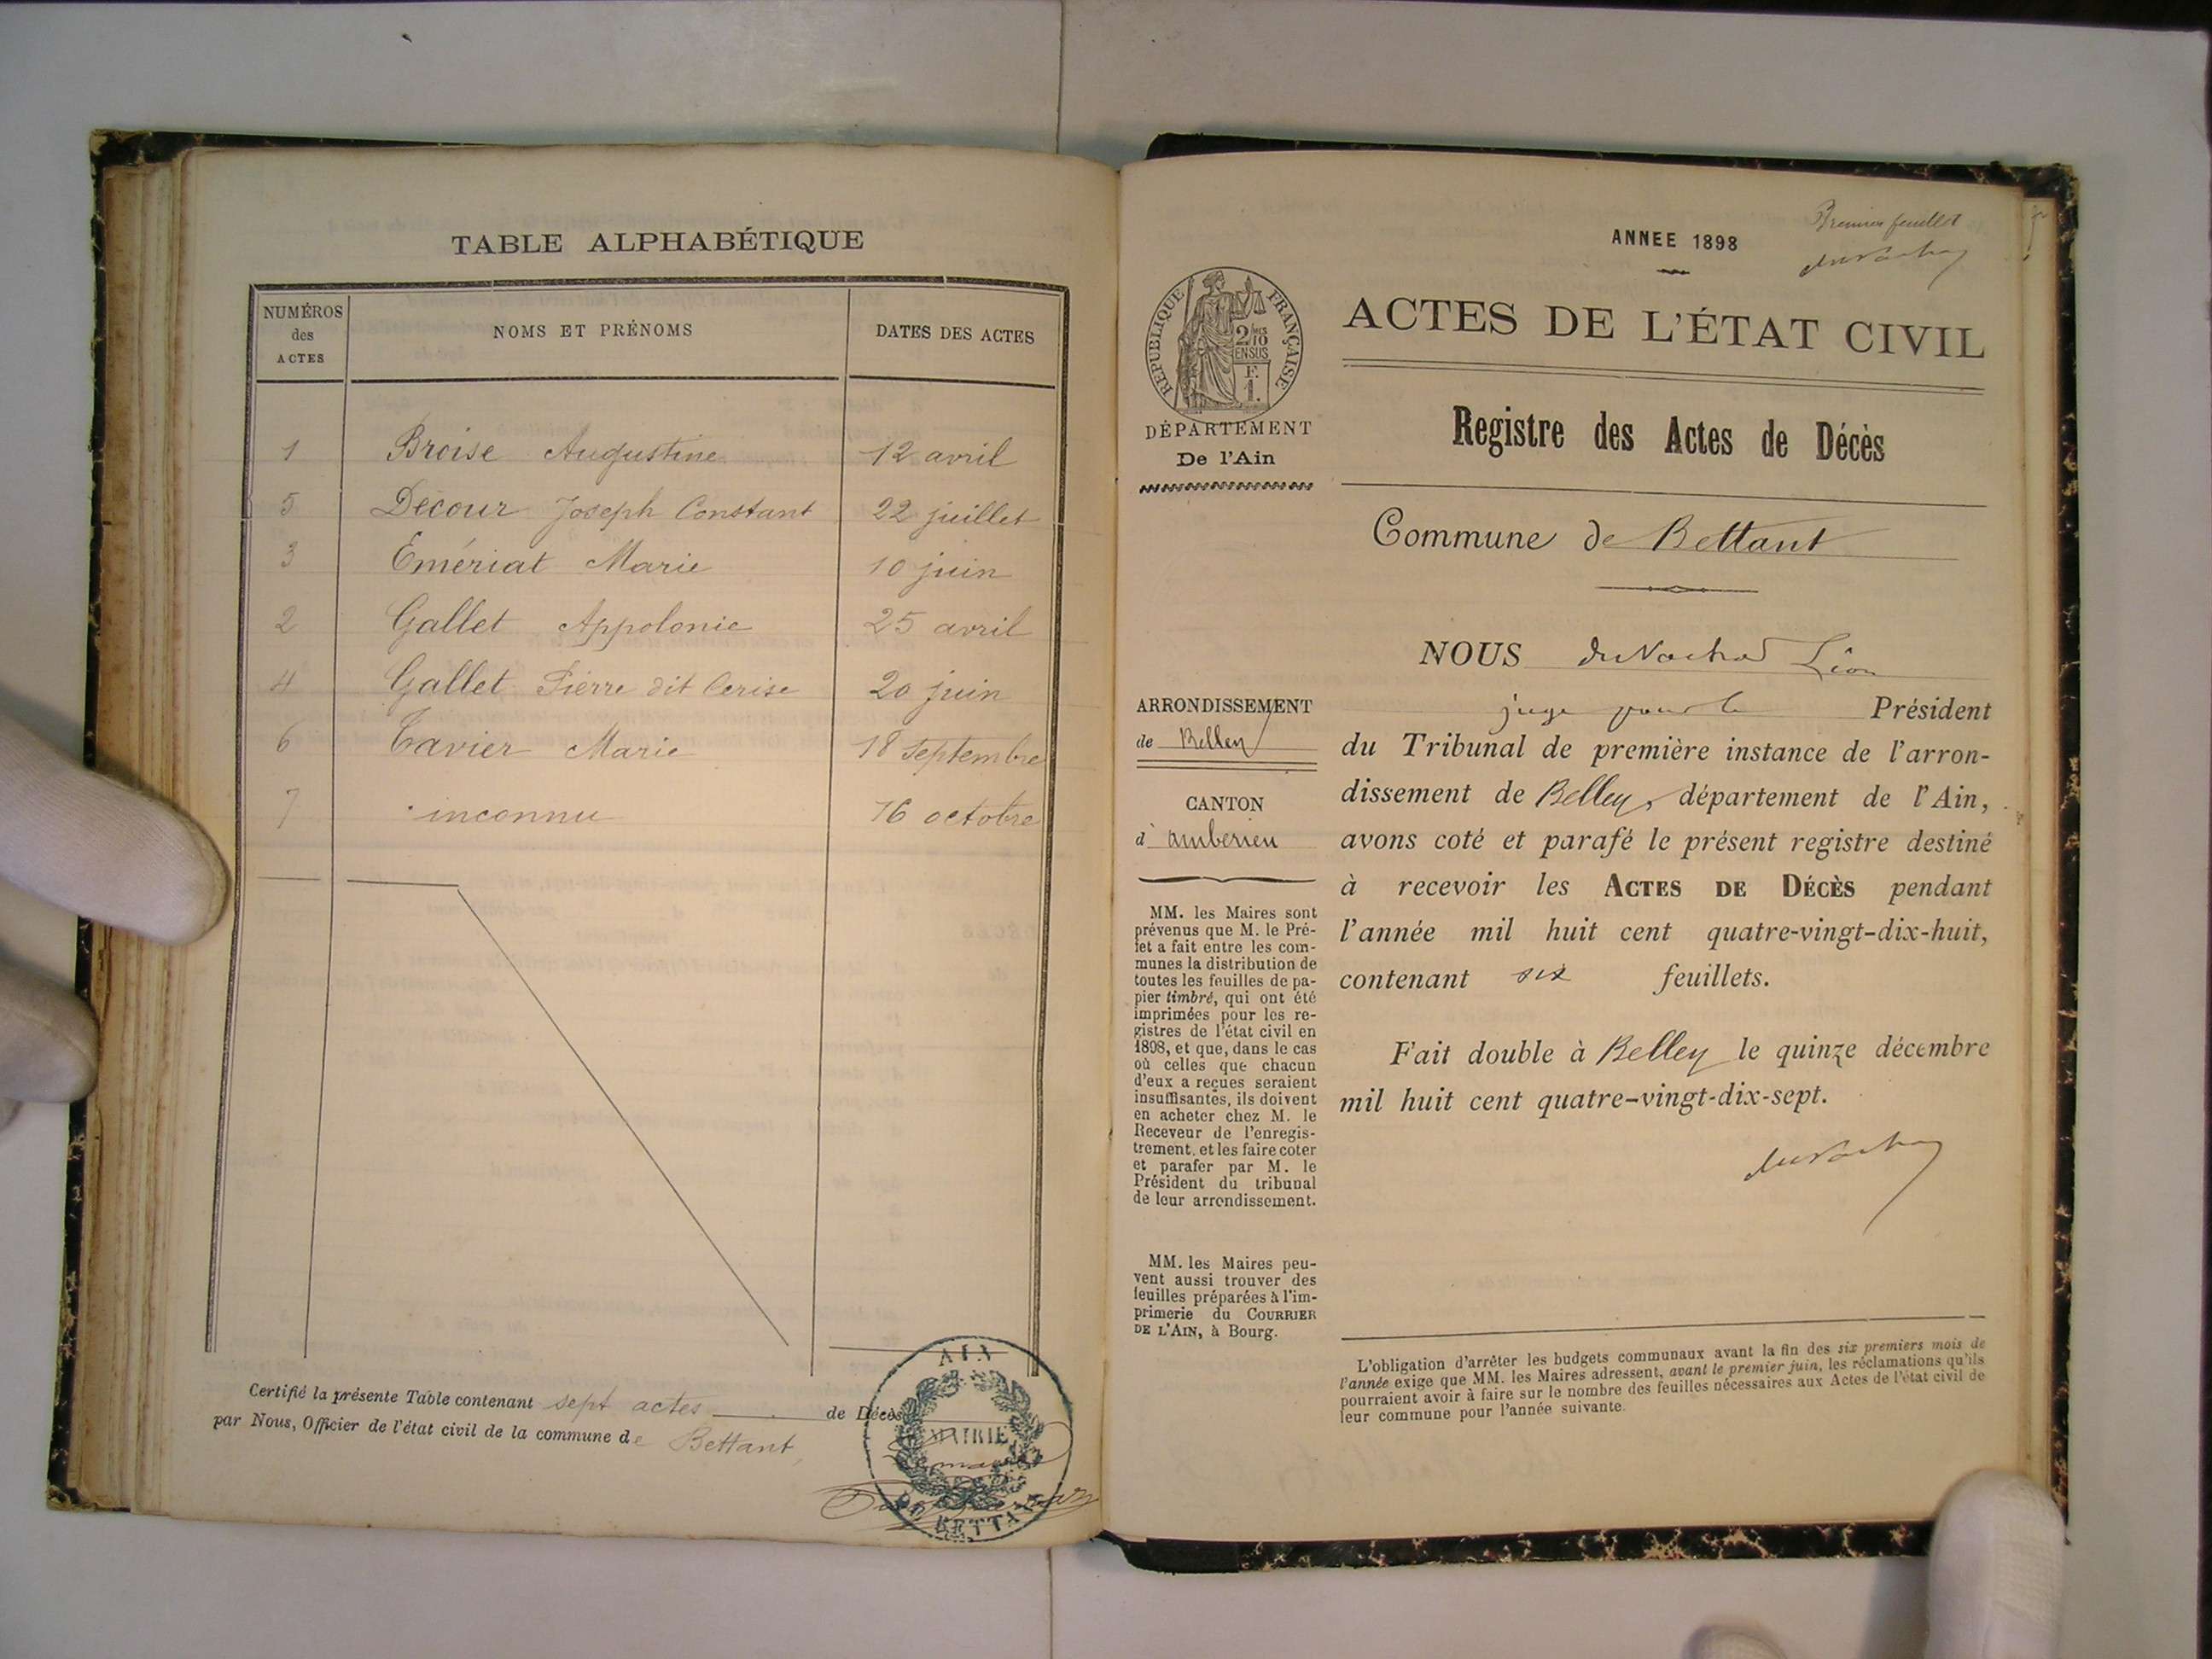 TABLE ALPHABÉTIQUE
NUMÉROS
des
ACTES
NOMS ET PRÉNOMS
DATES DES ACTES
1 Broise Augustine 12 avril
5 Décour Joseph Constant 22 juillet
3 Émériat Marie 10 juin
2 Gallet Appolonie 25 avril
4 Gallet Pierre dit Cerise 20 juin
6 Tavier Marie 18 Septembre
7 inconnu 16 octobre
Certifié la présente Table contenant sept actes de Décès
par Nous, Officier de l'état civil de la commune de Bettant,
AIN
MAIRIE
BETTA
Premier feuillet
ANNEE 1898
ACTES DE L'ÉTAT CIVIL
Registre des Actes de Décès
RÉPUBLIQUE FRANÇAISE
2/10 MES
EN SUS
F.
1.
DÉPARTEMENT
De l'Ain
Commune de Bettant
NOUS Léon
juge pour le Président
du Tribunal de première instance de l'arron-
dissement de Belley, département de l'Ain,
avons coté et parafé le présent registre destiné
à recevoir les ACTES DE DÉCÈS pendant
l'année mil huit cent quatre-vingt-dix-huit,
contenant six feuillets.
Fait double à Belley le quinze décembre
mil huit cent quatre-vingt-dix-sept.
ARRONDISSEMENT
de Belley
CANTON
d'amberieu
MM. les Maires sont
prévenus que M. le Pré-
fet a fait entre les com-
munes la distribution de
toutes les feuilles de pa-
pier timbré, qui ont été
imprimées pour les re-
gistres de l'état civil en
1898, et que, dans le cas
où celles que chacun
d'eux a reçues seraient
insuffisantes, ils doivent
en acheter chez M. le
Receveur de l'enregis-
trement, et les faire coter
et parafer par M. le
Président du tribunal
de leur arrondissement.
MM. les Maires peu-
vent aussi trouver des
feuilles préparées à l'im-
primerie du COURRIER
DE L'AIN, à Bourg.
L'obligation d'arrêter les budgets communaux avant la fin des six premiers mois de
l'année exige que MM. les Maires adressent, avant le premier juin, les réclamations qu'ils
pourraient avoir à faire sur le nombre des feuilles nécessaires aux Actes de l'état civil de
leur commune pour l'année suivante.